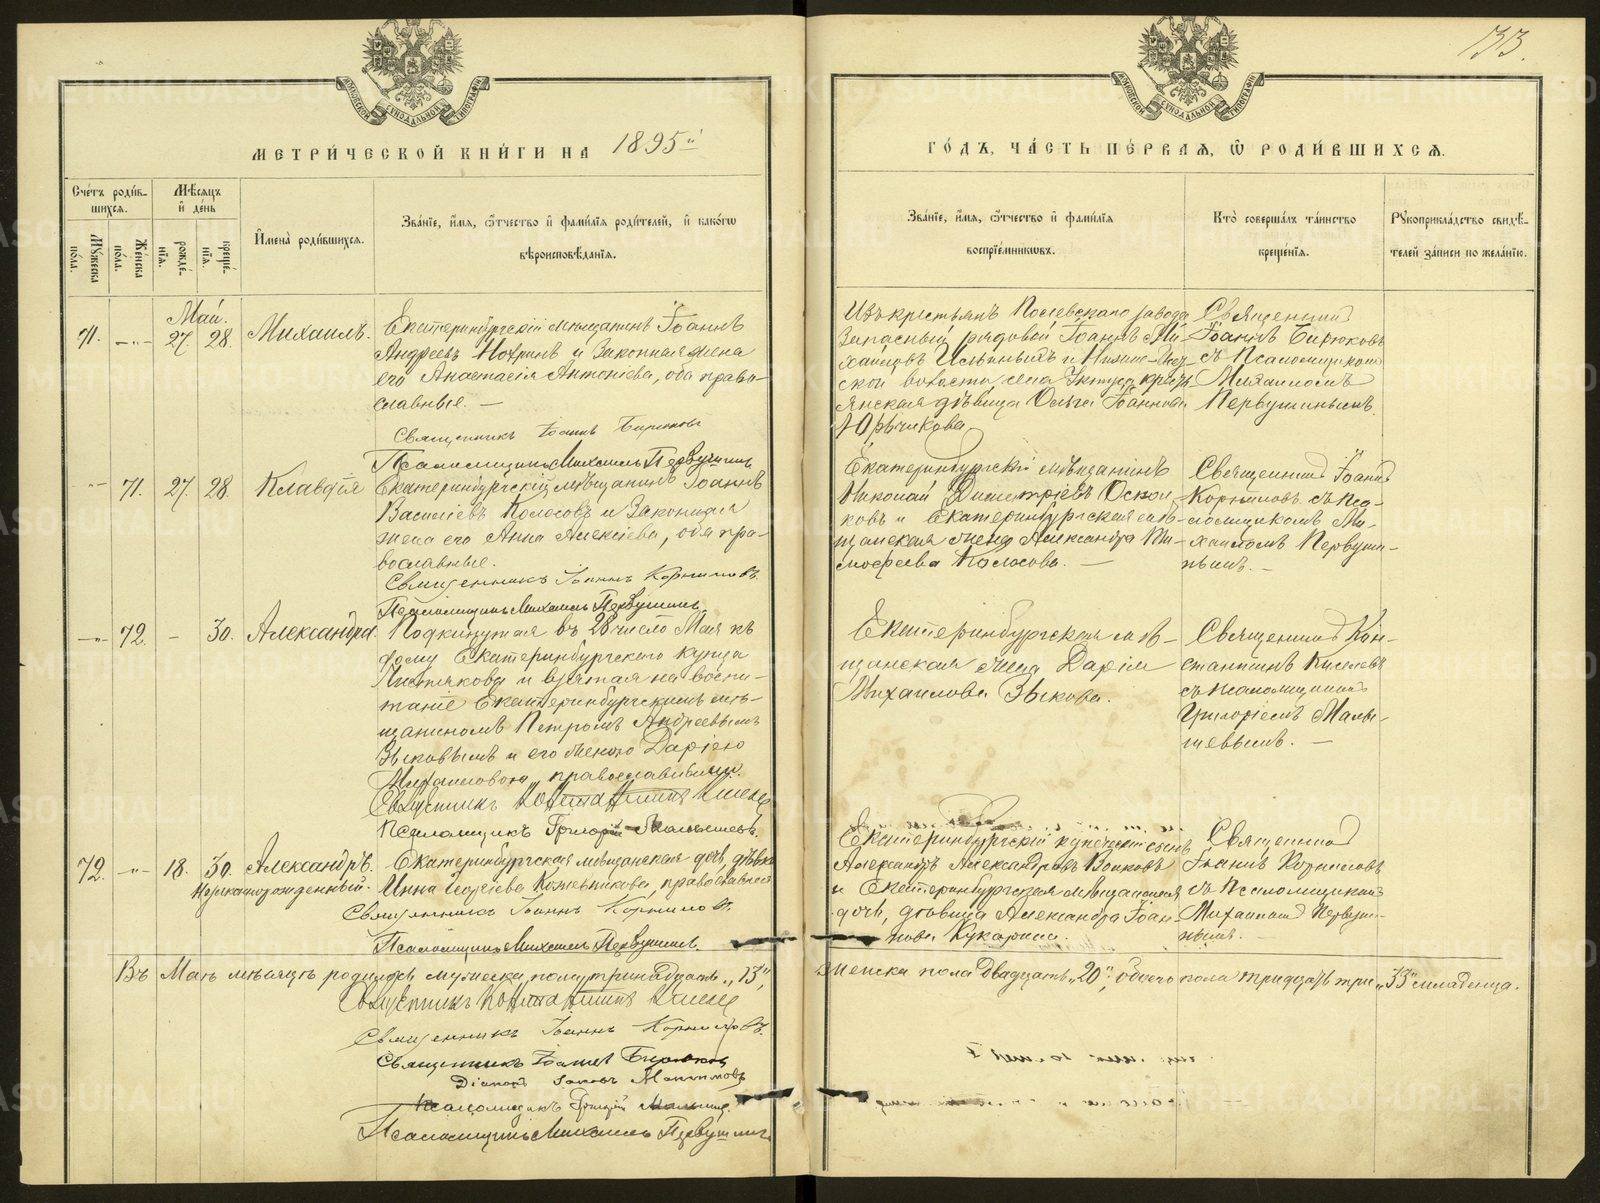 133.
МЕТРИ́ЧЕСКОЙ КНИ́ГИ НА 1895й
ГО́ДЪ, ЧА́СТЬ ПЕ́РВАѦ, Ѡ҆ РОДИ́ВШИХСѦ.
Сче́тъ роди́в-
шихся.
Мѣ́сяцъ
и҆ де́нь
Мꙋжеска по́ла.
Же́нска по́ла.
рожде́нїѧ.
креще́нїѧ.
И҆мена̀ роди́вшихся.
Зва́нїе, и҆́мя, ѻ҆́тчество и҆ фами́лїя роди́телей, и҆ како́гѡ
вѣроисповѣ́данїя.
Зва́нїе, и҆́мя, ѻ҆́тчество и҆ фами́лїя
воспрїе́мникѡвъ.
Кто̀ соверша́лъ та́инство
креще́нїя.
Рꙋкоприкла́дство свидѣ́-
телей за́писи по жела́нїю.
Май.
71. —„— 27. 28. Михаилъ.
Екатеринбургскій мѣщанинъ Іоаннъ
Андреевъ и законная жена
его Анастасія Антоніева, оба право-
славные. —
Священникъ Іоаннъ Бирюковъ
Псаломщикъ Михаилъ Первушинъ
Изъ крестьянъ завода
запасный рядовой Іоаннъ Ми-
хаиловъ Ильиныхъ и
ской волости, села кресть-
янская дѣвица Ольга Іоаннова
Священникъ
Іоаннъ Бирюковъ
съ Псаломщикомъ
Михаиломъ
Первушинымъ.
—„— 71. 27. 28. Клавдія
Екатеринбургскій мѣщанинъ Іоаннъ
Василіевъ Колосовъ и законная
жена его Анна Алексіева, оба пра-
вославные.
Священникъ Іоаннъ Корниловъ.
Псаломщикъ Михаилъ Первушинъ.
Екатеринбургскій мѣщанинъ
Николай Димитріевъ Оскол-
ковъ и Екатеринбургская мѣ-
щанская жена Александра Ти-
моѳеева Колосова. —
Священникъ Іоаннъ
Корниловъ съ Пса-
ломщикомъ Ми-
хаиломъ Первуши-
нымъ. —
—„— 72. — 30. Александра
Подкинутая въ 28 число Мая къ
дому Екатеринбургскаго купца
и взятая на воспи-
таніе Екатеринбургскимъ мѣ-
щаниномъ Петромъ Андреевымъ
Зыковымъ и его женою Даріею
Михаиловою, православными.
Священникъ Константинъ
Псаломщикъ Григорій Малышевъ.
Екатеринбургская мѣ-
щанская жена Дарія
Михаилова Зыкова.
Священникъ Кон-
стантинъ Киселевъ
съ псаломщикомъ
Григоріемъ Малы-
шевымъ. —
72. —„— 18. 30. Александръ.
Незаконнорожденный.
Екатеринбургская мѣщанская дочь, дѣвица
Анна Георгіева Кожевникова, православная
Священникъ Іоаннъ Корниловъ.
Псаломщикъ Михаилъ Первушинъ.
Екатеринбургскій купеческій сынъ
Александръ Александровъ Волковъ
и Екатеринбургская мѣщанская
дочь, дѣвица Александра Іоан-
нова Кукарина.
Священникъ
Іоаннъ Корниловъ
съ Псаломщикомъ
Михаиломъ Первуши-
нымъ.
Въ Маѣ мѣсяцѣ родилось мужеска пола тринадцать „13“,
женска пола двадцать „20“, обоего пола тридцать три „33“ младенца.
Священникъ Константинъ
Священникъ Іоаннъ Корниловъ.
Священникъ Іоаннъ Бирюковъ
Діаконъ
Псаломщикъ Григорій
Псаломщикъ Михаилъ Первушинъ